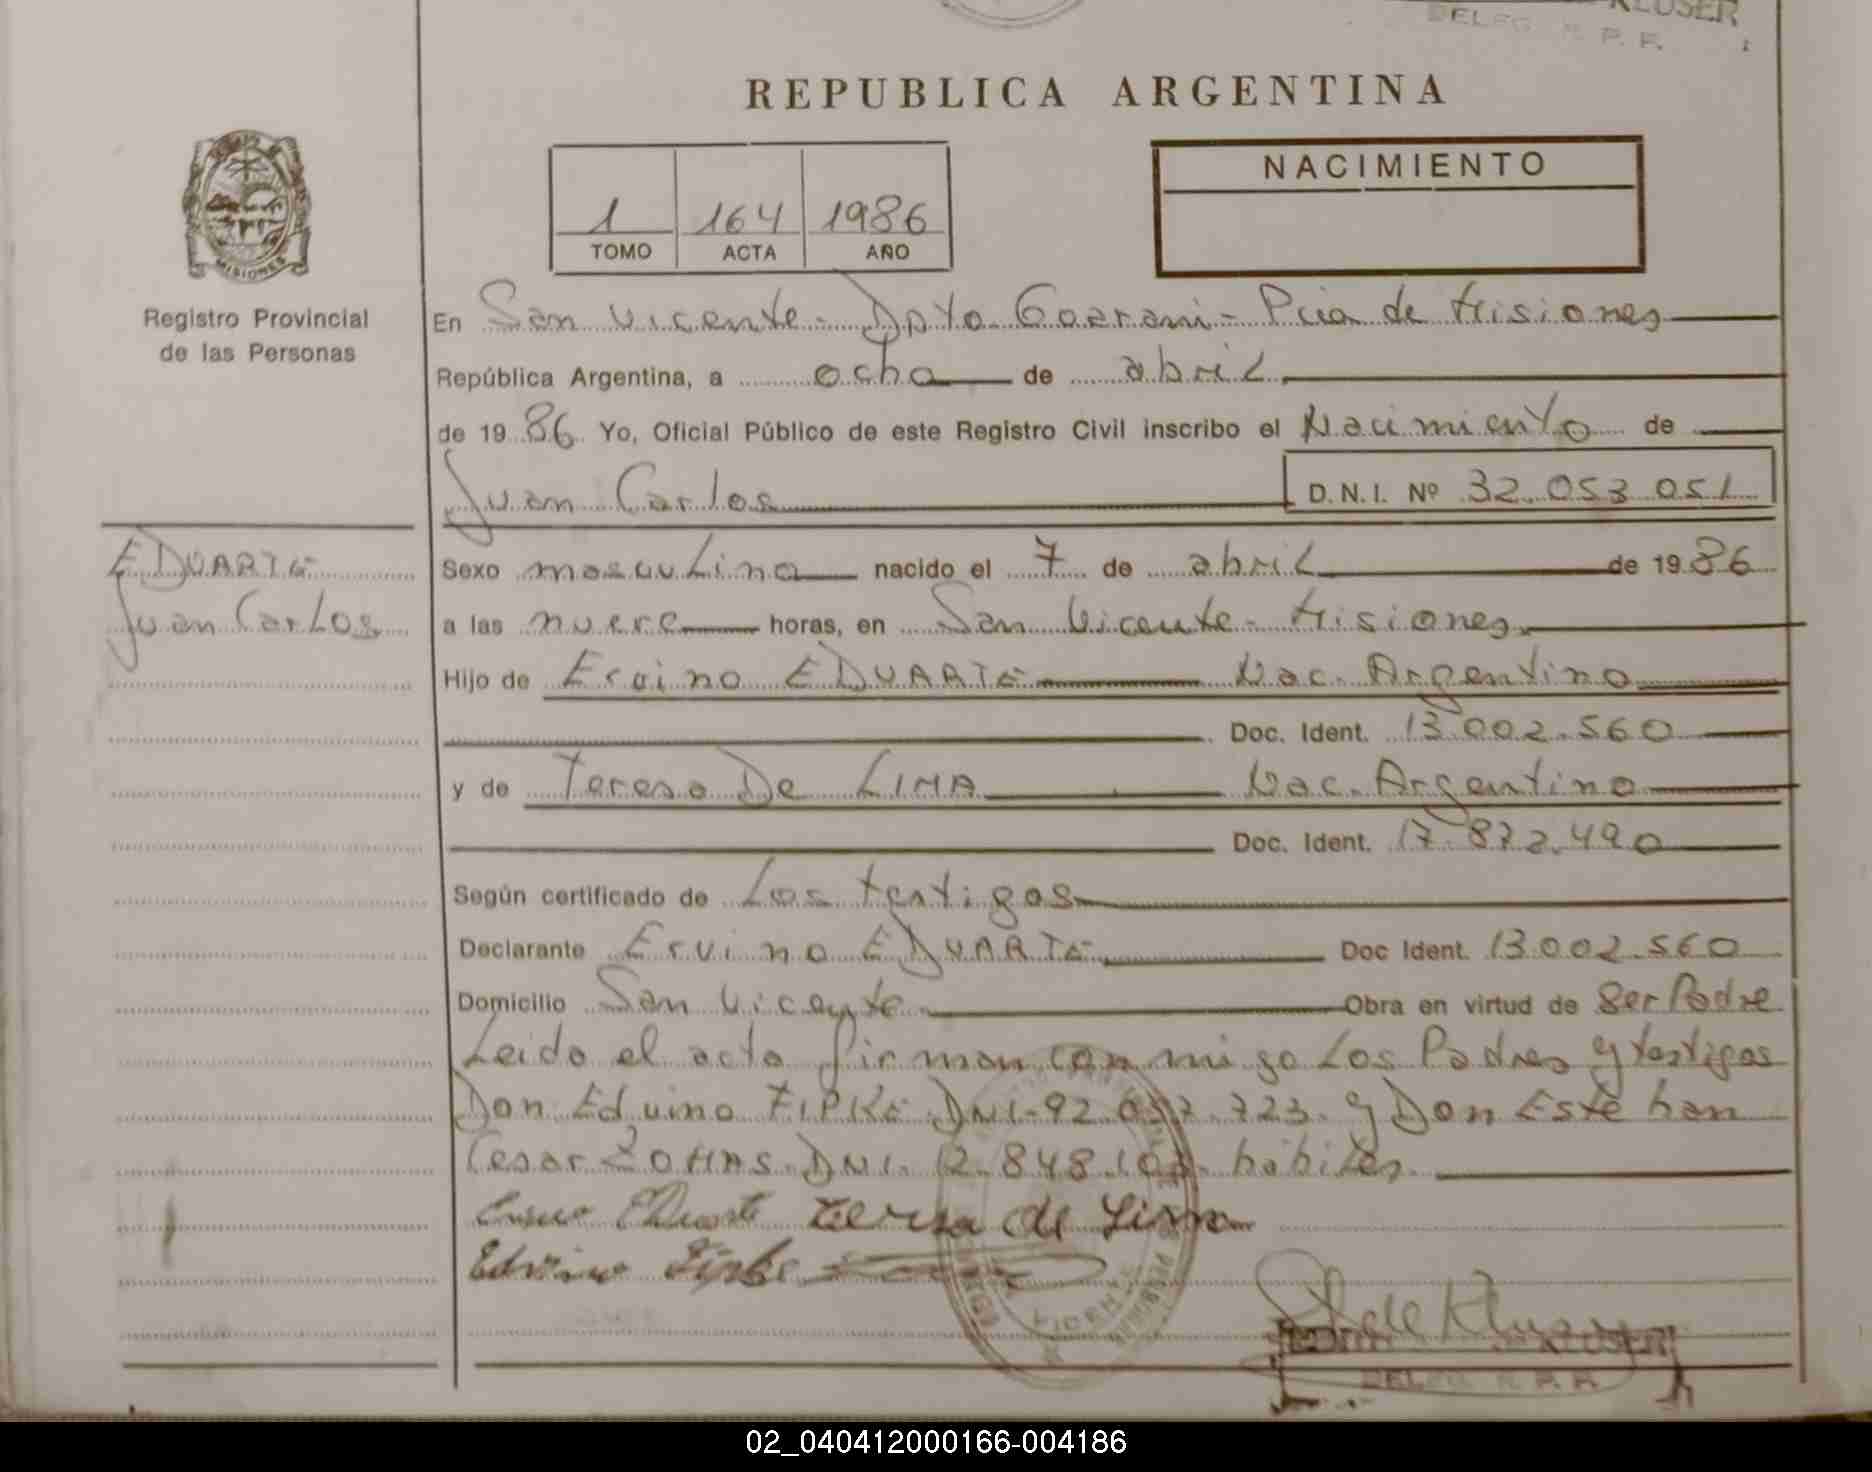 KLUSER
DELEG R. P. F.
REPUBLICA ARGENTINA
NACIMIENTO
1 164 1986
TOMO ACTA AÑO
MISIONES
Registro Provincial
de las Personas
En San Vicente - Dpto Guarani - Pcia de Misiones
República Argentina, a ocho de abril
de 19 86 Yo, Oficial Público de este Registro Civil inscribo el Nacimiento de
Juan Carlos D.N.I. Nº 32.053 051
EDUARTE
Juan Carlos
Sexo masculino nacido el 7 de abril de 19 86
a las nueve horas, en San Vicente - Misiones
Hijo de Ervino EDUARTE Nac. Argentino
Doc. Ident. 13.002.560
y de Teresa De LIMA Nac. Argentino
Doc. Ident. 17.872.490
Según certificado de Los testigos
Declarante Ervino EDUARTE Doc Ident. 13.002.560
Domicilio San Vicente Obra en virtud de Ser Padre
Leido el acta firman con migo Los Padres y testigos
Don Eduino FIPKE DNI-92.057.723. y Don Esteban
Cesar ZOHAS DNI. 12.848.10 habiles.
Eduarte Teresa de Lima
Edvino Fipke
VICENTE
Kluser
KLUSER
DELEG R. P. F.
02_040412000166-004186